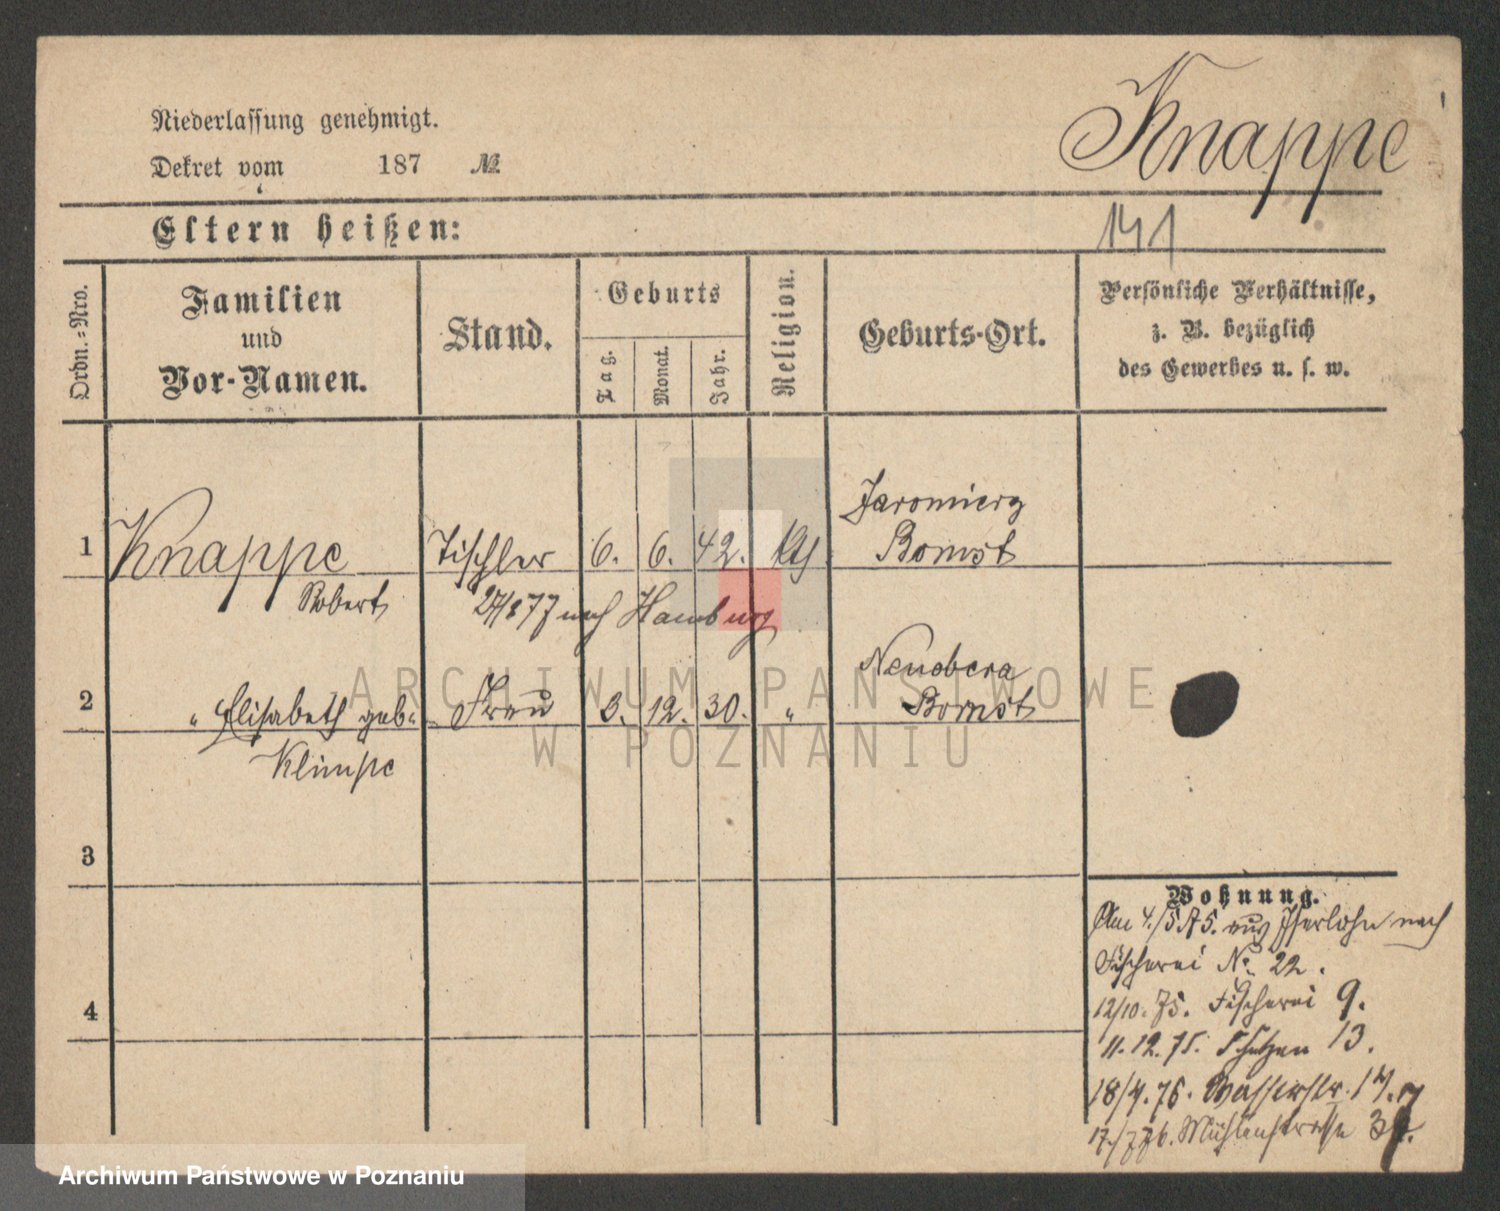 Knappe
Niederlassung genehmigt.
Dekret vom 187 №
Eltern heißen:
141
Ordn.-Nro.
Familien
und
Vor-Namen.
Stand.
Geburts
Tag.
Monat.
Jahr.
Religion.
Geburts-Ort.
Persönliche Verhältnisse,
z. B. bezüglich
des Gewerbes u. s. w.
Jaromierz
1 Knappe Tischler 6. 6. 42. kth Bomst
Robert 27/8 77 nach Hamburg
2 " Elisabeth geb. Frau 3. 12. 30. " Bomst
Klimpe
3
4
Wohnung.
Am 4./5 75. aus Iserlohn nach
Fischerei No 22.
12/10. 75. Fischerei 9.
11. 12. 75. Schützen 13.
18/4. 76. Wasserstr. 17.
Mühlenstrasse
ARCHIWUM PAŃSTWOWE
W POZNANIU
Archiwum Państwowe w Poznaniu